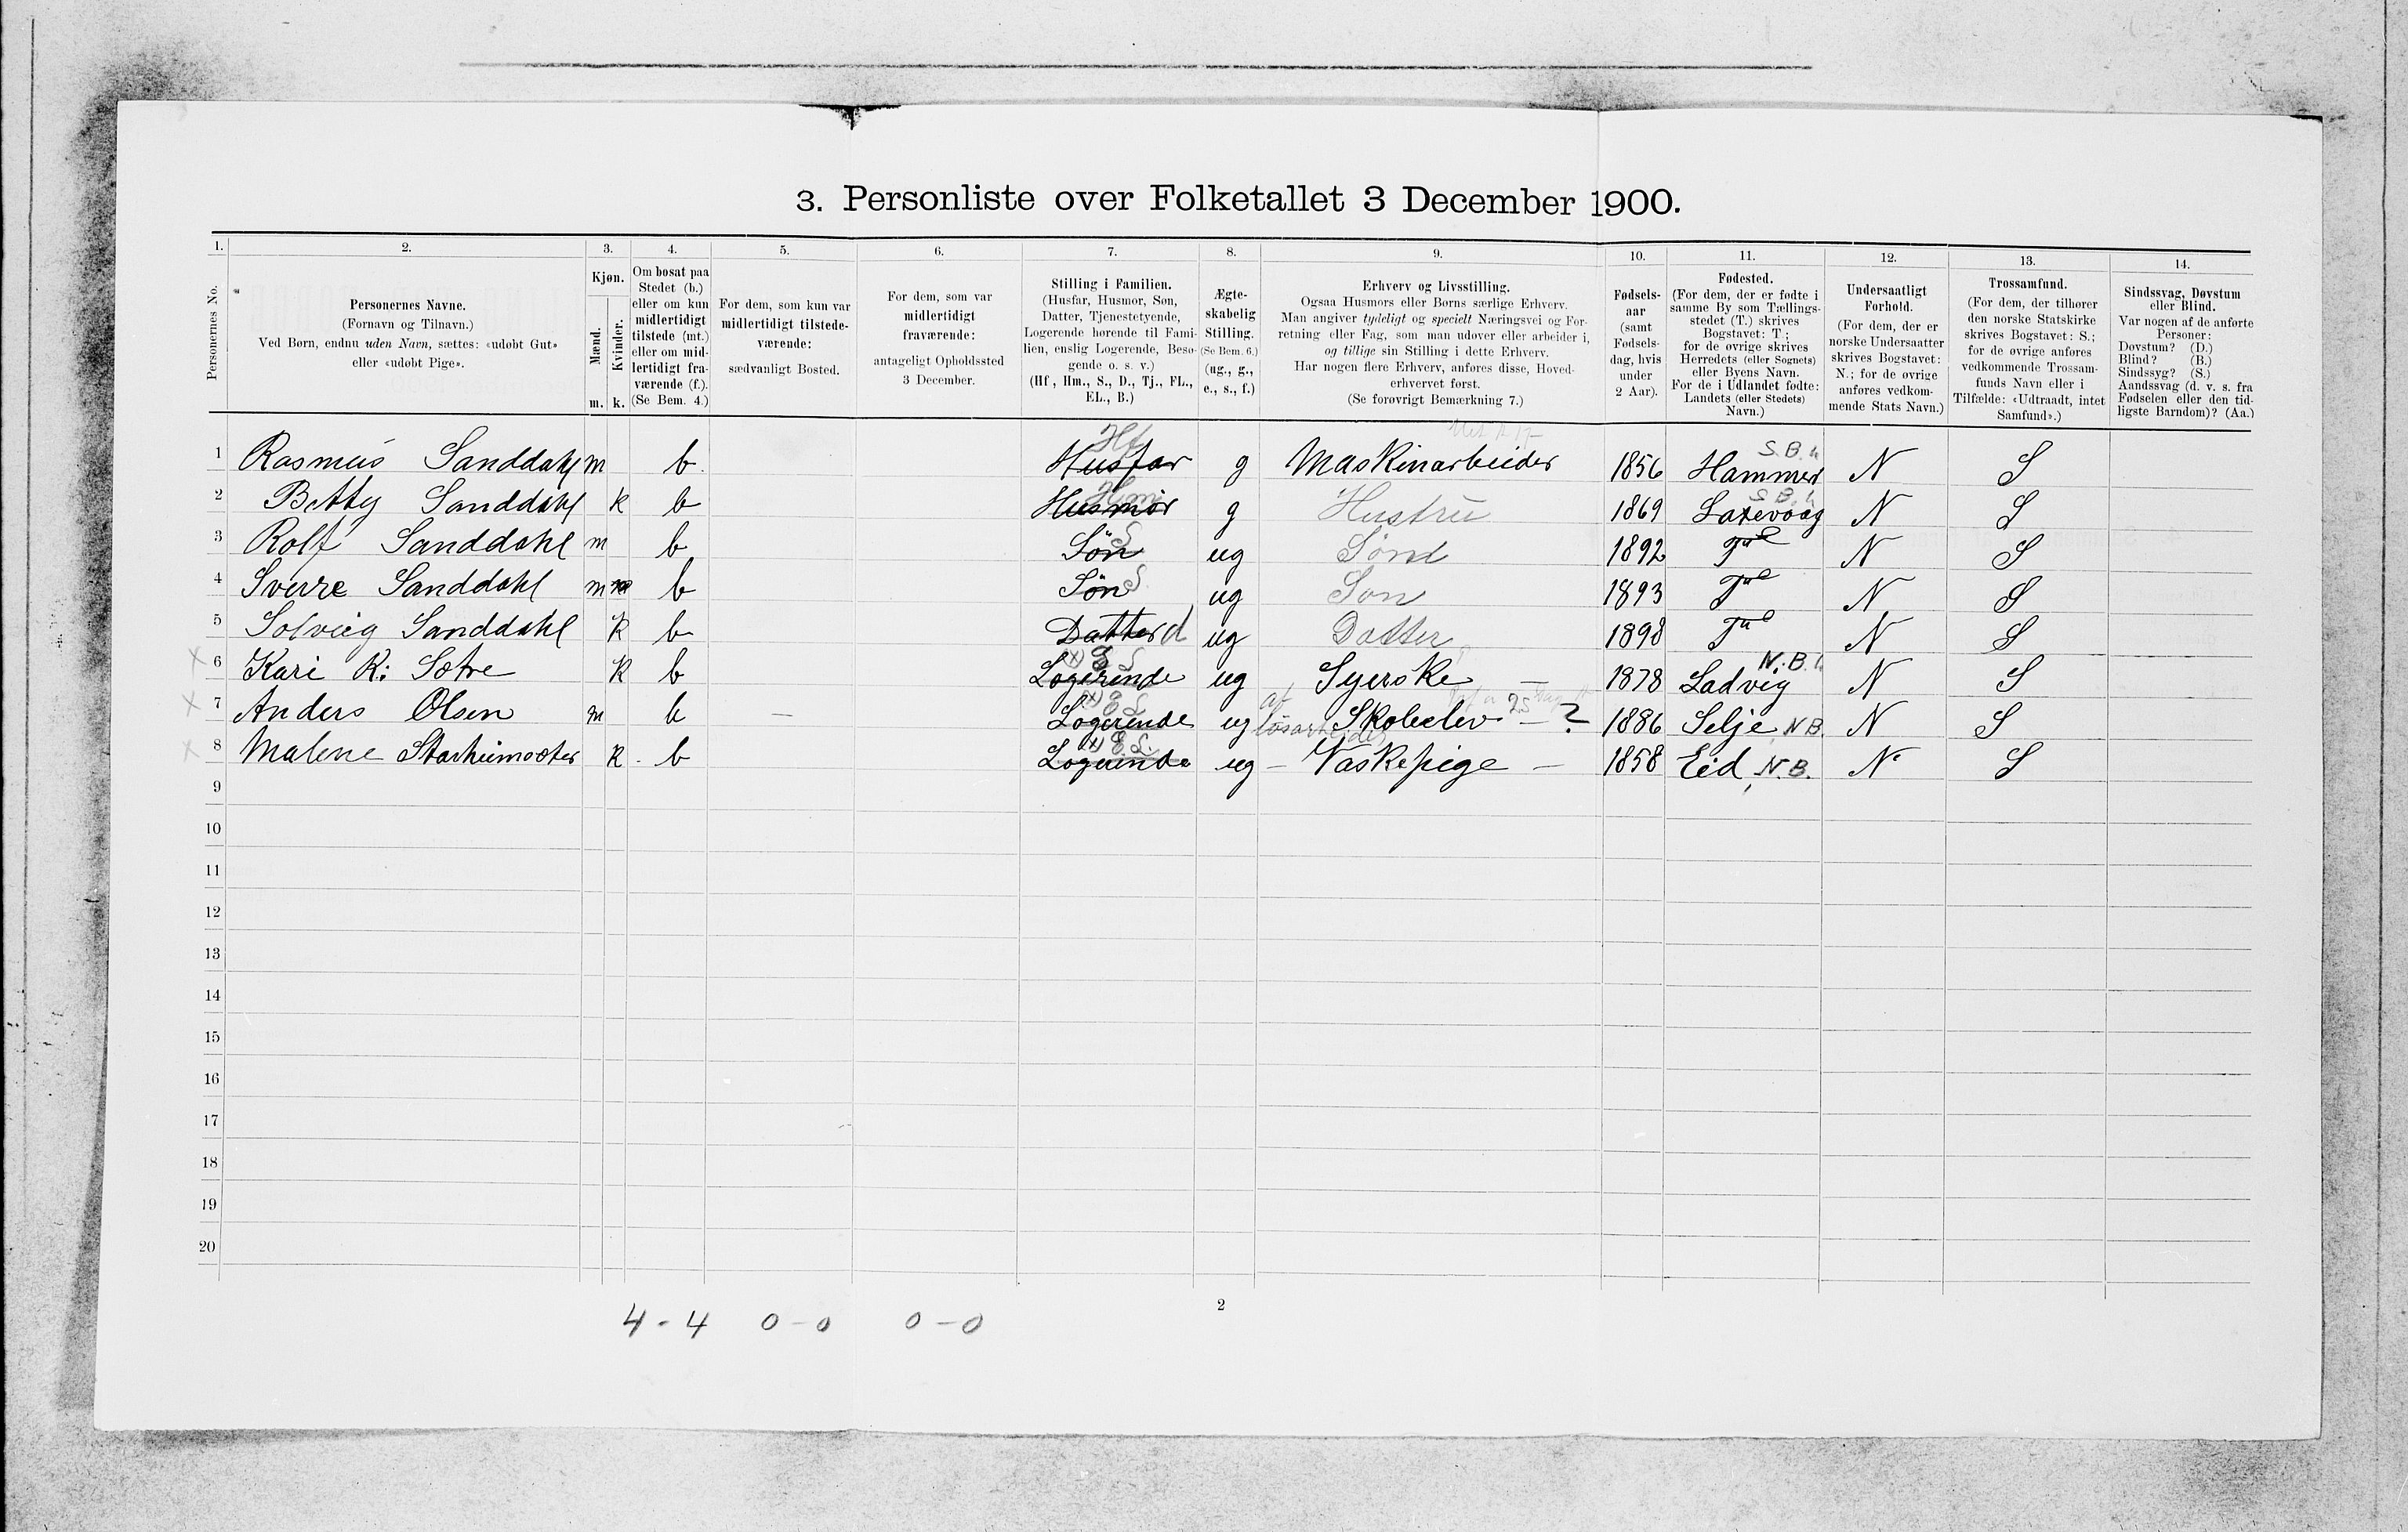 3. Personliste over Folketallet 3 December 1900.
1. 2. 3. 4. 5. 6. 7. 8. 9. 10. 11. 12. 13. 14.
Personernes No.
Personernes Navne.
(Fornavn og Tilnavn.)
Ved Børn, endnu uden Navn, sættes: «udøbt Gut»
eller «udøbt Pige».
Kjøn.
Mænd.
Kvinder.
m. k.
Om bosat paa
Stedet (b.)
eller om kun
midlertidigt
tilstede (mt.)
eller om mid-
lertidigt fra-
værende (f.).
(Se Bem. 4.)
For dem, som kun var
midlertidigt tilstede-
værende:
sædvanligt Bosted.
For dem, som var
midlertidigt
fraværende:
antageligt Opholdssted
3 December.
Stilling i Familien.
(Husfar, Husmor, Søn,
Datter, Tjenestetyende,
Logerende hørende til Fami-
lien, enslig Logerende, Besø-
gende o. s. v.)
(Hf., Hm., S., D., Tj., FL.,
EL., B.)
Ægte-
skabelig
Stilling.
(Se Bem. 6.)
(ug., g.,
e., s., f.)
Erhverv og Livsstilling.
Ogsaa Husmors eller Børns særlige Erhverv.
Man angiver tydeligt og specielt Næringsvei og For-
retning eller Fag, som man udøver eller arbeider i,
og tillige sin Stilling i dette Erhverv.
Har nogen flere Erhverv, anføres disse, Hoved-
erhvervet først.
(Se forøvrigt Bemærkning 7.)
Fødsels-
aar
(samt
Fødsels-
dag, hvis
under
2 Aar).
Fødested.
(For dem, der er fødte i
samme By som Tællings-
stedet (T.) skrives
Bogstavet: T.;
for de øvrige skrives
Herredets (eller Sognets)
eller Byens Navn.
For de i Udlandet fødte:
Landets (eller Stedets)
Navn.)
Undersaatligt
Forhold.
(For dem, der er
norske Undersaatter
skrives Bogstavet:
N.; for de øvrige
anføres vedkom-
mende Stats Navn.)
Trossamfund.
(For dem, der tilhører
den norske Statskirke
skrives Bogstavet: S.;
for de øvrige anføres
vedkommende Trossam-
funds Navn eller i
Tilfælde: «Udtraadt, intet
Samfund».)
Sindssvag, Døvstum
eller Blind.
Var nogen af de anførte
Personer:
Døvstum? (D.)
Blind? (B.)
Sindssyg? (S.)
Aandssvag (d. v. s. fra
Fødselen eller den tid-
ligste Barndom)? (Aa.)
1 Rasmus Sanddahl m b. Husfar Hf g Maskinarbeider 1856 Hammer S.B. N S
2 Betty Sanddahl k b Husmor Hm g Hustru 1869 Laxevaag S.B. N S
3 Rolf Sanddahl m b Søn S ug Sønd 1892 N S
4 Sverre Sanddahl m b Søn S ug Søn 1893 N S
5 Solveig Sanddahl k b Datter d ug Datter 1898 N S
x 6 Kari K: Sætre k b Logerende x) E L ug Syerske — 1878 Ladvig N.B. N S
x 7 Anders Olsen m b — Logerende x) E L ug løsarbeider Skoleelev — ? 25 1886 Selje N.B. N S
x 8 Malene Starheimsæter k. b Logerende x) E.L. ug — Vaskepige — 1858 Eid N.B. N. S
9
10
11
12
13
14
15
16
17
18
19
20
2
4 - 4 0 - 0 0 - 0